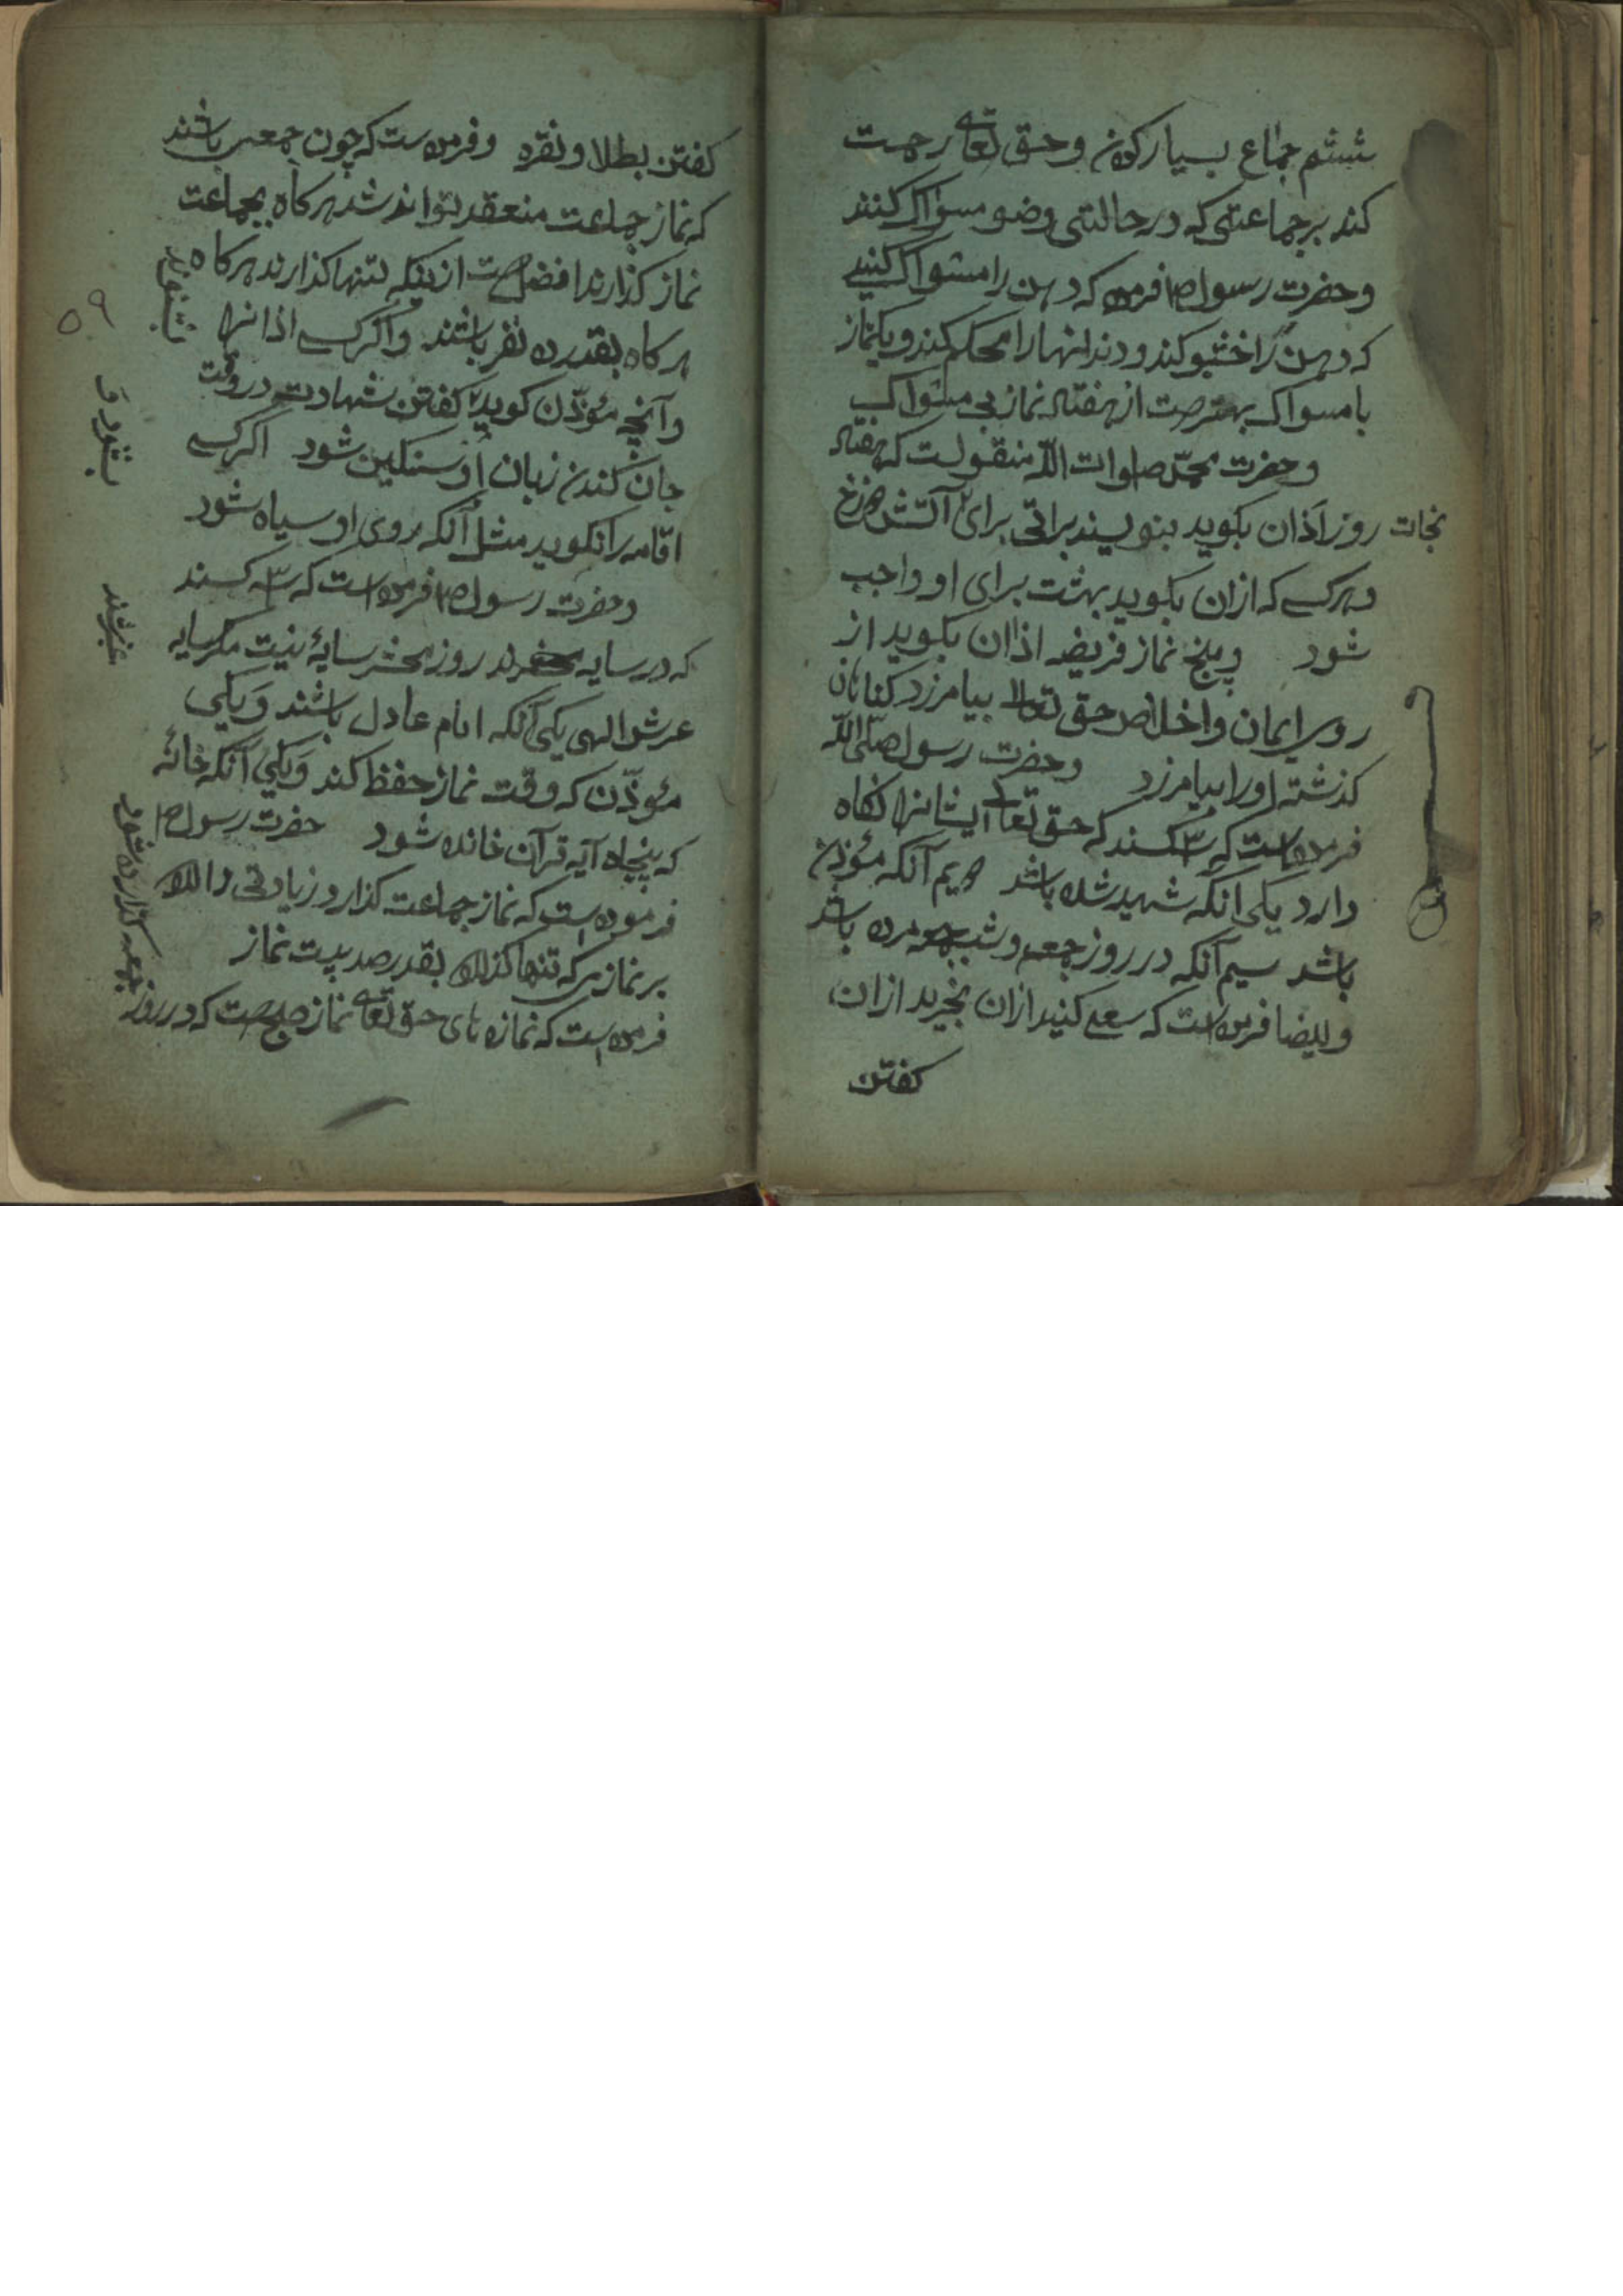 ششم جماع بسیار کردن و حق تعالی رحمت
کند بر جماعتی که در حالتی وضو مسواک کنند
و حضرت رسول ص فرموده که دهن را مسواک کنید
که دهن را خشبو کند و دندانها را محکم کند و یکنماز
با مسواک بهترست از هفتاد نماز بی مسواک
و حضرت محمّد صلوات اللّه منقولست که هفتاد
روز اَذان بکوید بنویسند براتی برای آتش دوزخ
نجات
و هرکسے که ازان بکوید بهشت برای او واجب
شود و پنج نماز فریضه اذان بکوید از
روی ایمان و اخلاص حق تعالا بیامرزد کناهان
کذشته او را بیامرزد و حضرت رسول صلّی اللّه
فرموده است که ۳ کسند که حق تعالی ایشانها نکاه
دارد یکی انکه شهید شده باشد دویم آنکه مؤذن
باشد سیم آنکه در روز جمعه و شب جمعه مرده باشد
و ایضا فرموده است که سعی کنید ازان بخرید ازان
کفتن
کفتن بطلا و نقره و فرموده ست که چون جمعی باشند
که نماز جماعت منعقد تواند شد هرکاه بجماعت
نماز کذارند افضل ست ازینکه تنها کذارند هرکاه
هرکاه بقدر ده نفر باشند و اکر کسے اذانها
وآنچه مؤذّن کوید کفتن شهادت در وقت
جان کندن زبان او سنکین شود اکر کسے
اقامه را نکوید مثل آنکه روی او سیاه شود
و حضرت رسول ص فرموده است که ۳ کسند
که در سایه روز محشر سایهٔ نیت مکر سایه
عرش الهی یکی آنکه امام عادل باشند وَ یکی
مؤذّن که وقت نماز حفظ کند وَ یکی آنکه خانهٔ
که پنجاه آیه قرآن خانده شود حضرت رسول ص
فرموده است که نماز جماعت کذارد زیادتی دارد
بر نماز که تنها کذارد بقدر صد بیست نماز
فرموده است که نمازهای حق تعالی نماز صبح ست که در روز
بشنود و
جمعه کذارده شود
۵۹